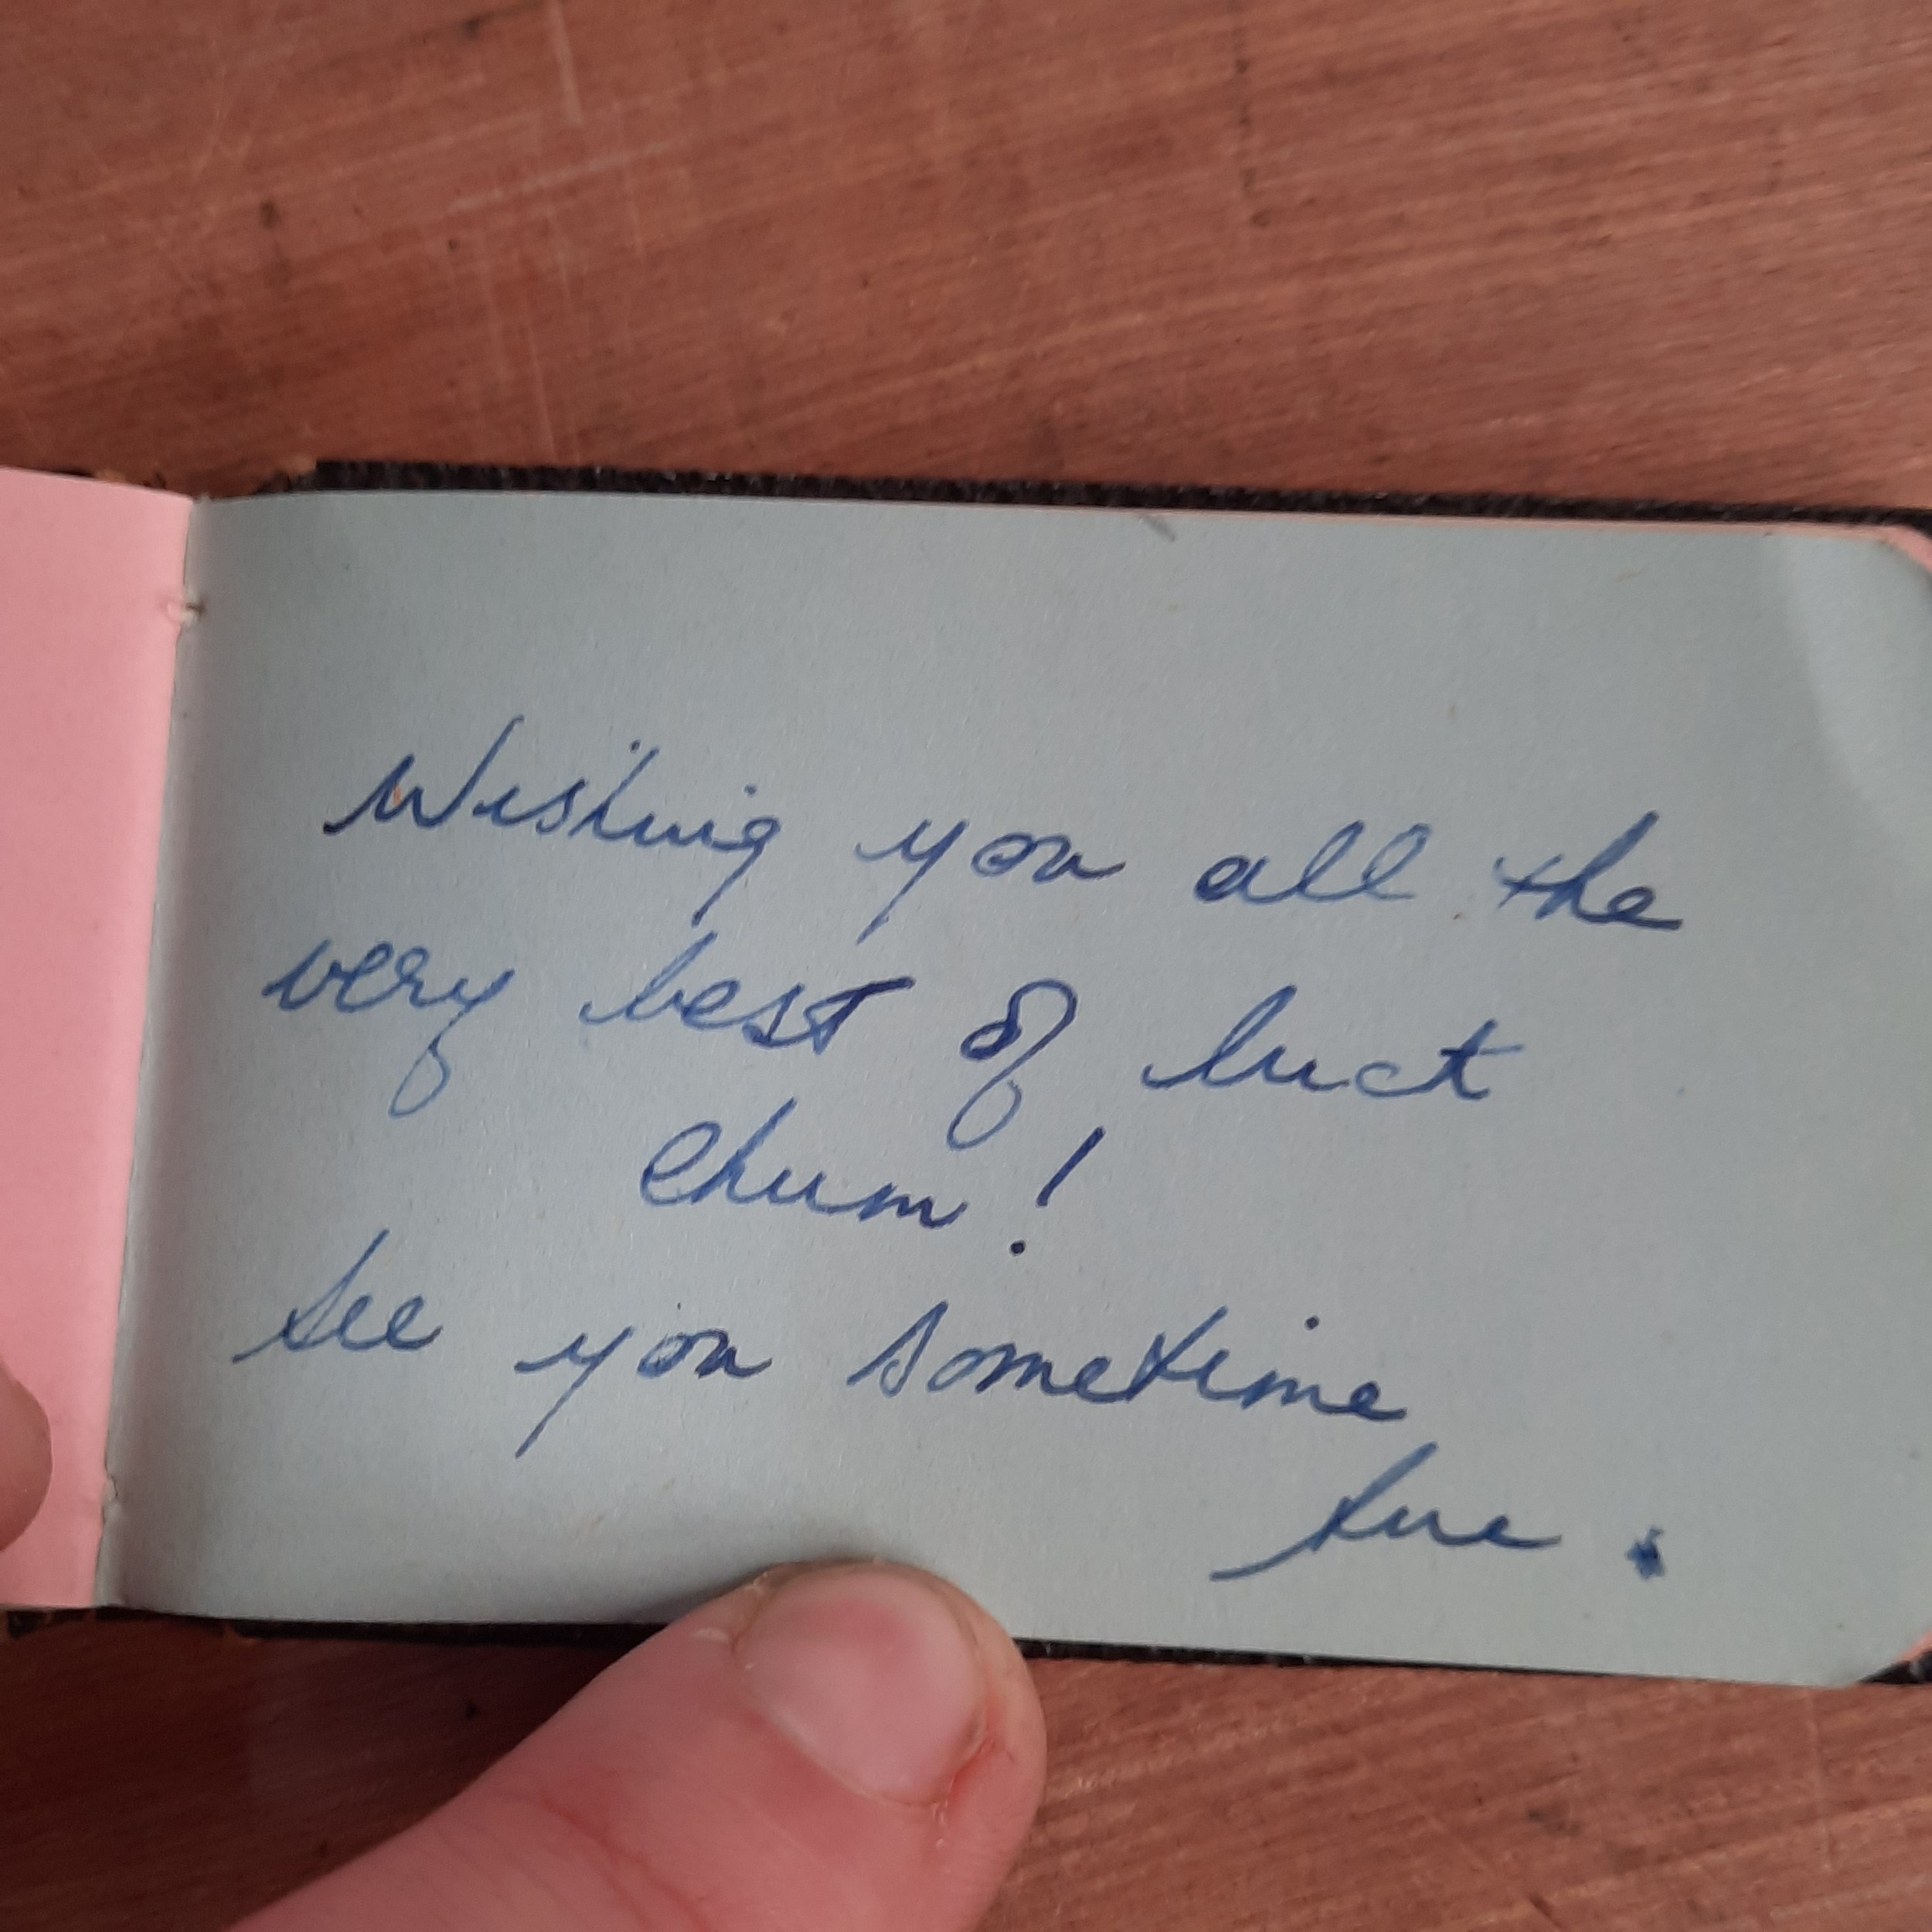 Wishing you all the
very best of luck
Chum!
See you sometime
Sue.